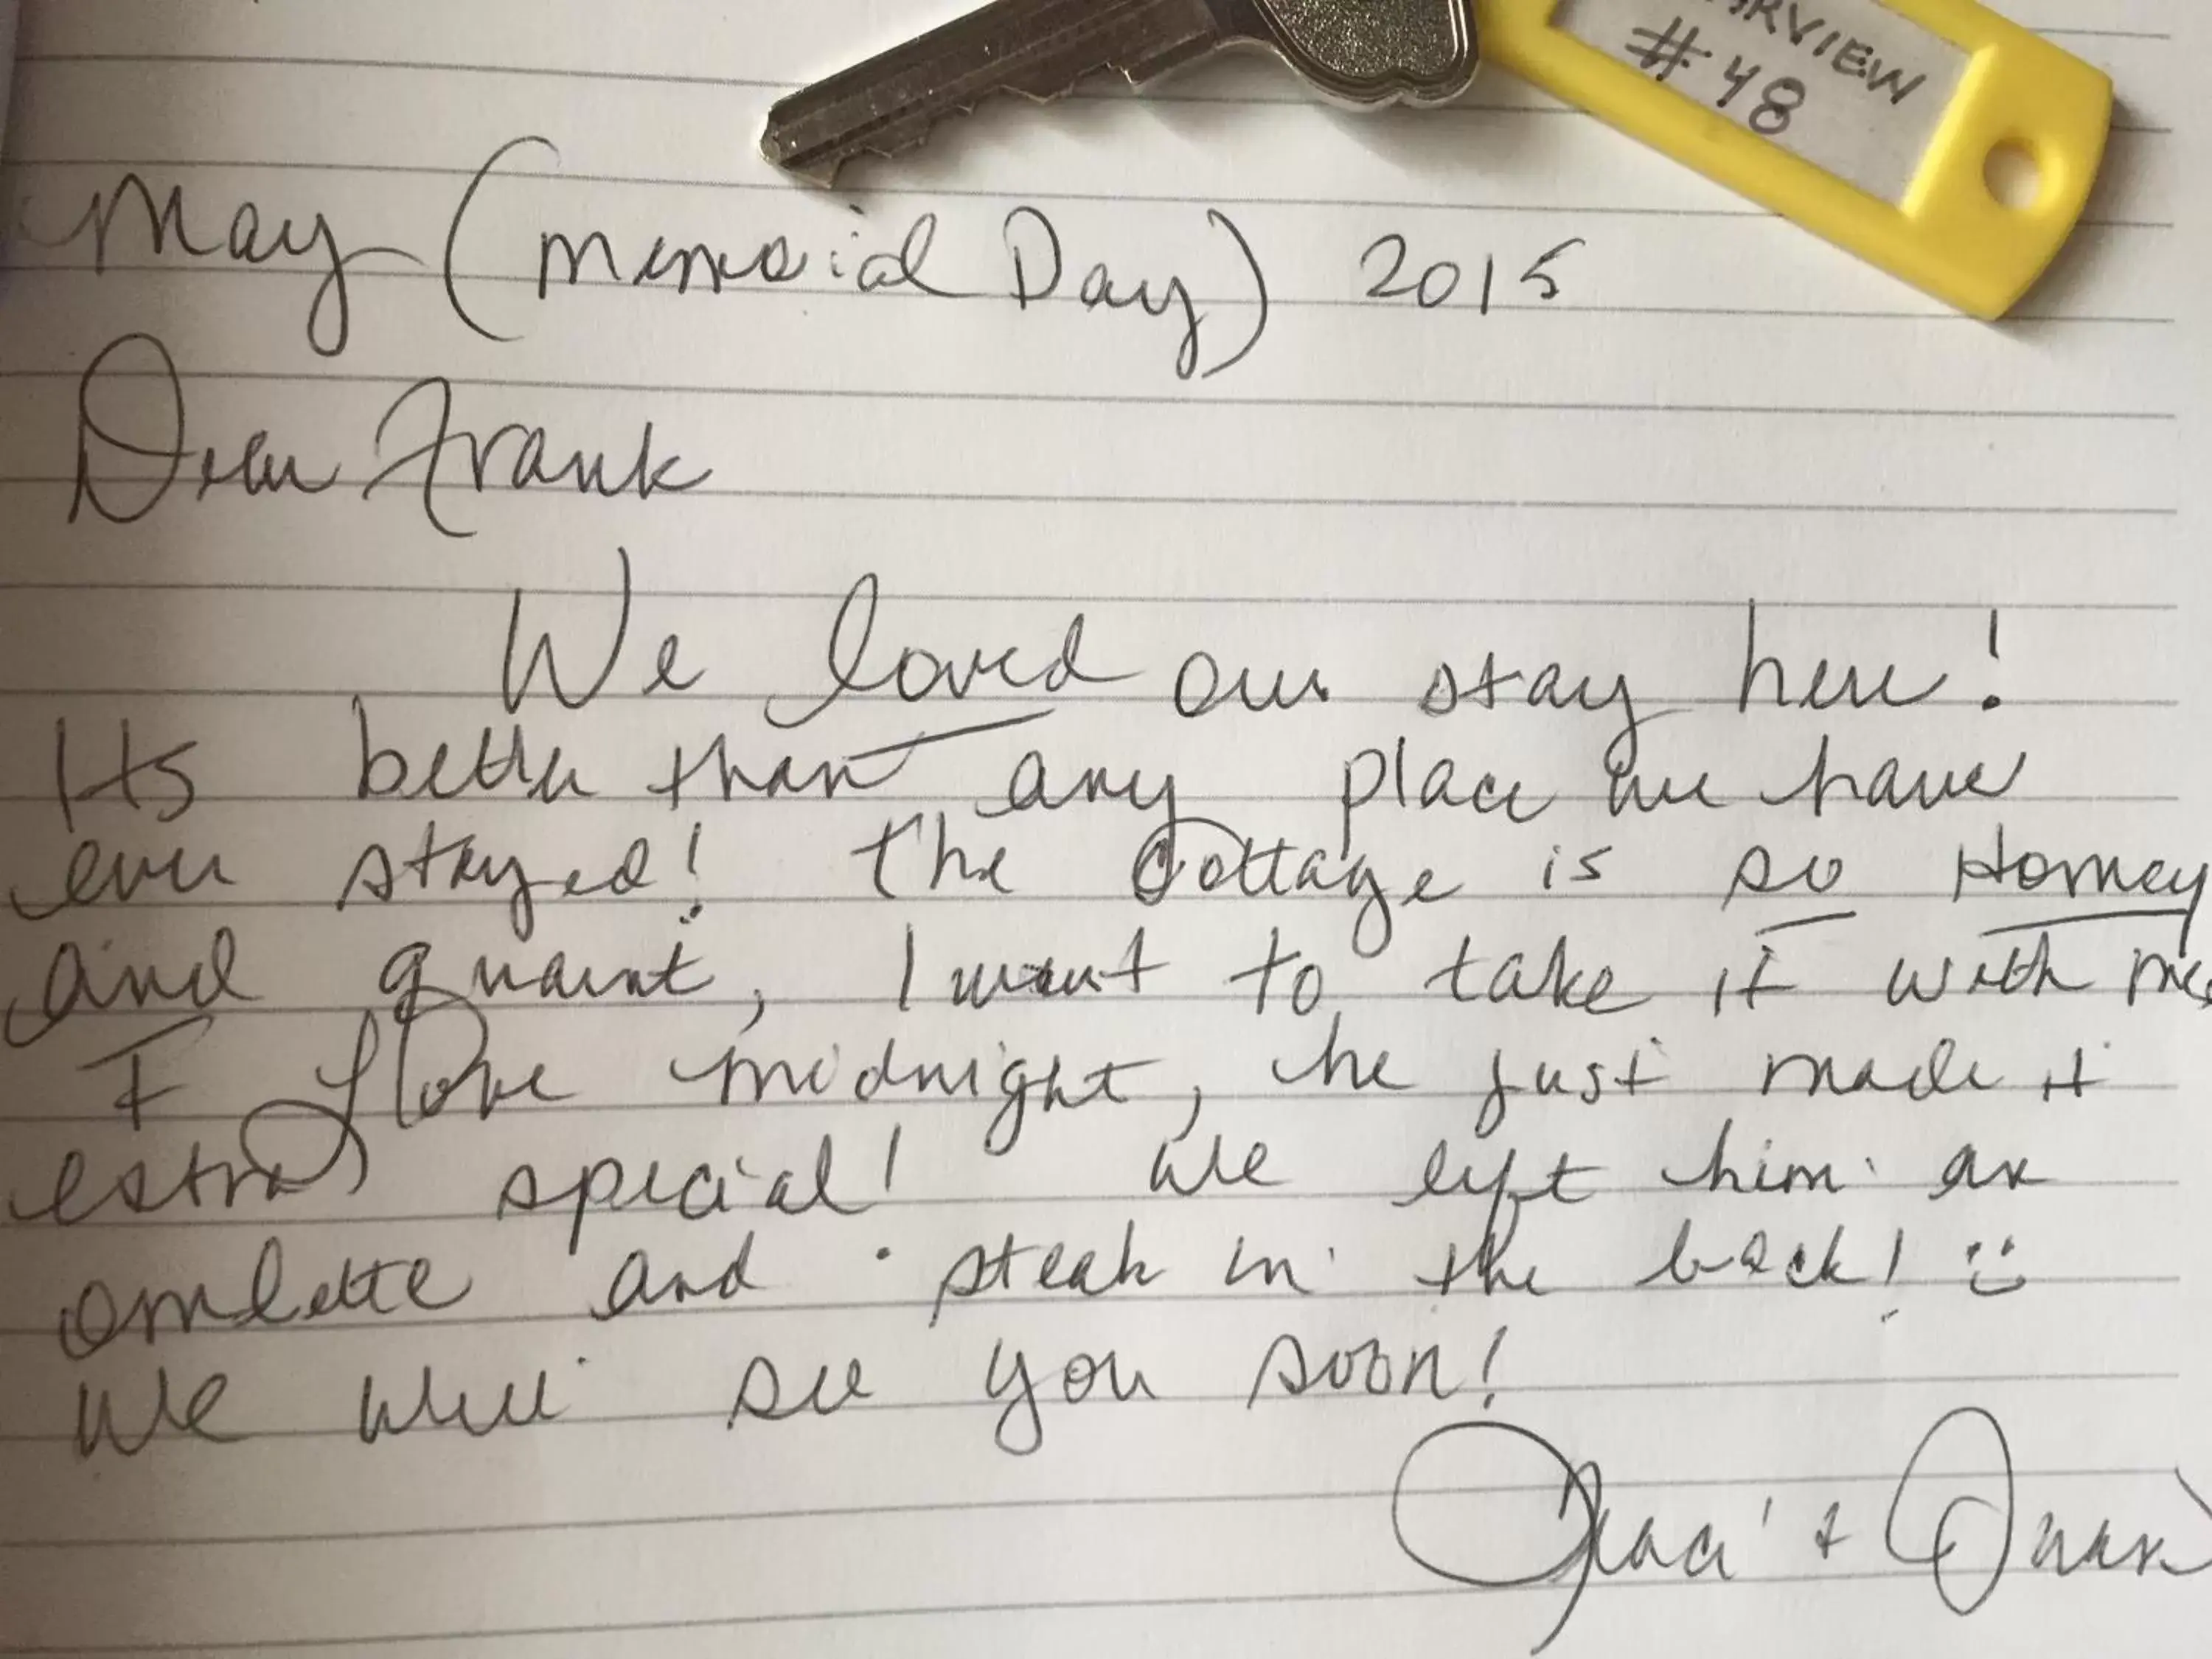 ARVIEW
#48
May (Memorial Day) 2015
Dear Frank
We loved our stay here!
Its better than any place we have
ever stayed! The Cottage is so Homey
and quaint, I want to take it with me
I love midnight, he just made it
extra special! We left him an
omlette and steak in the back! :)
We will see you soon!
& Juan